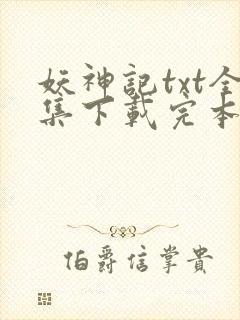 妖神記txt全
集下載完本
伯爵信掌貴